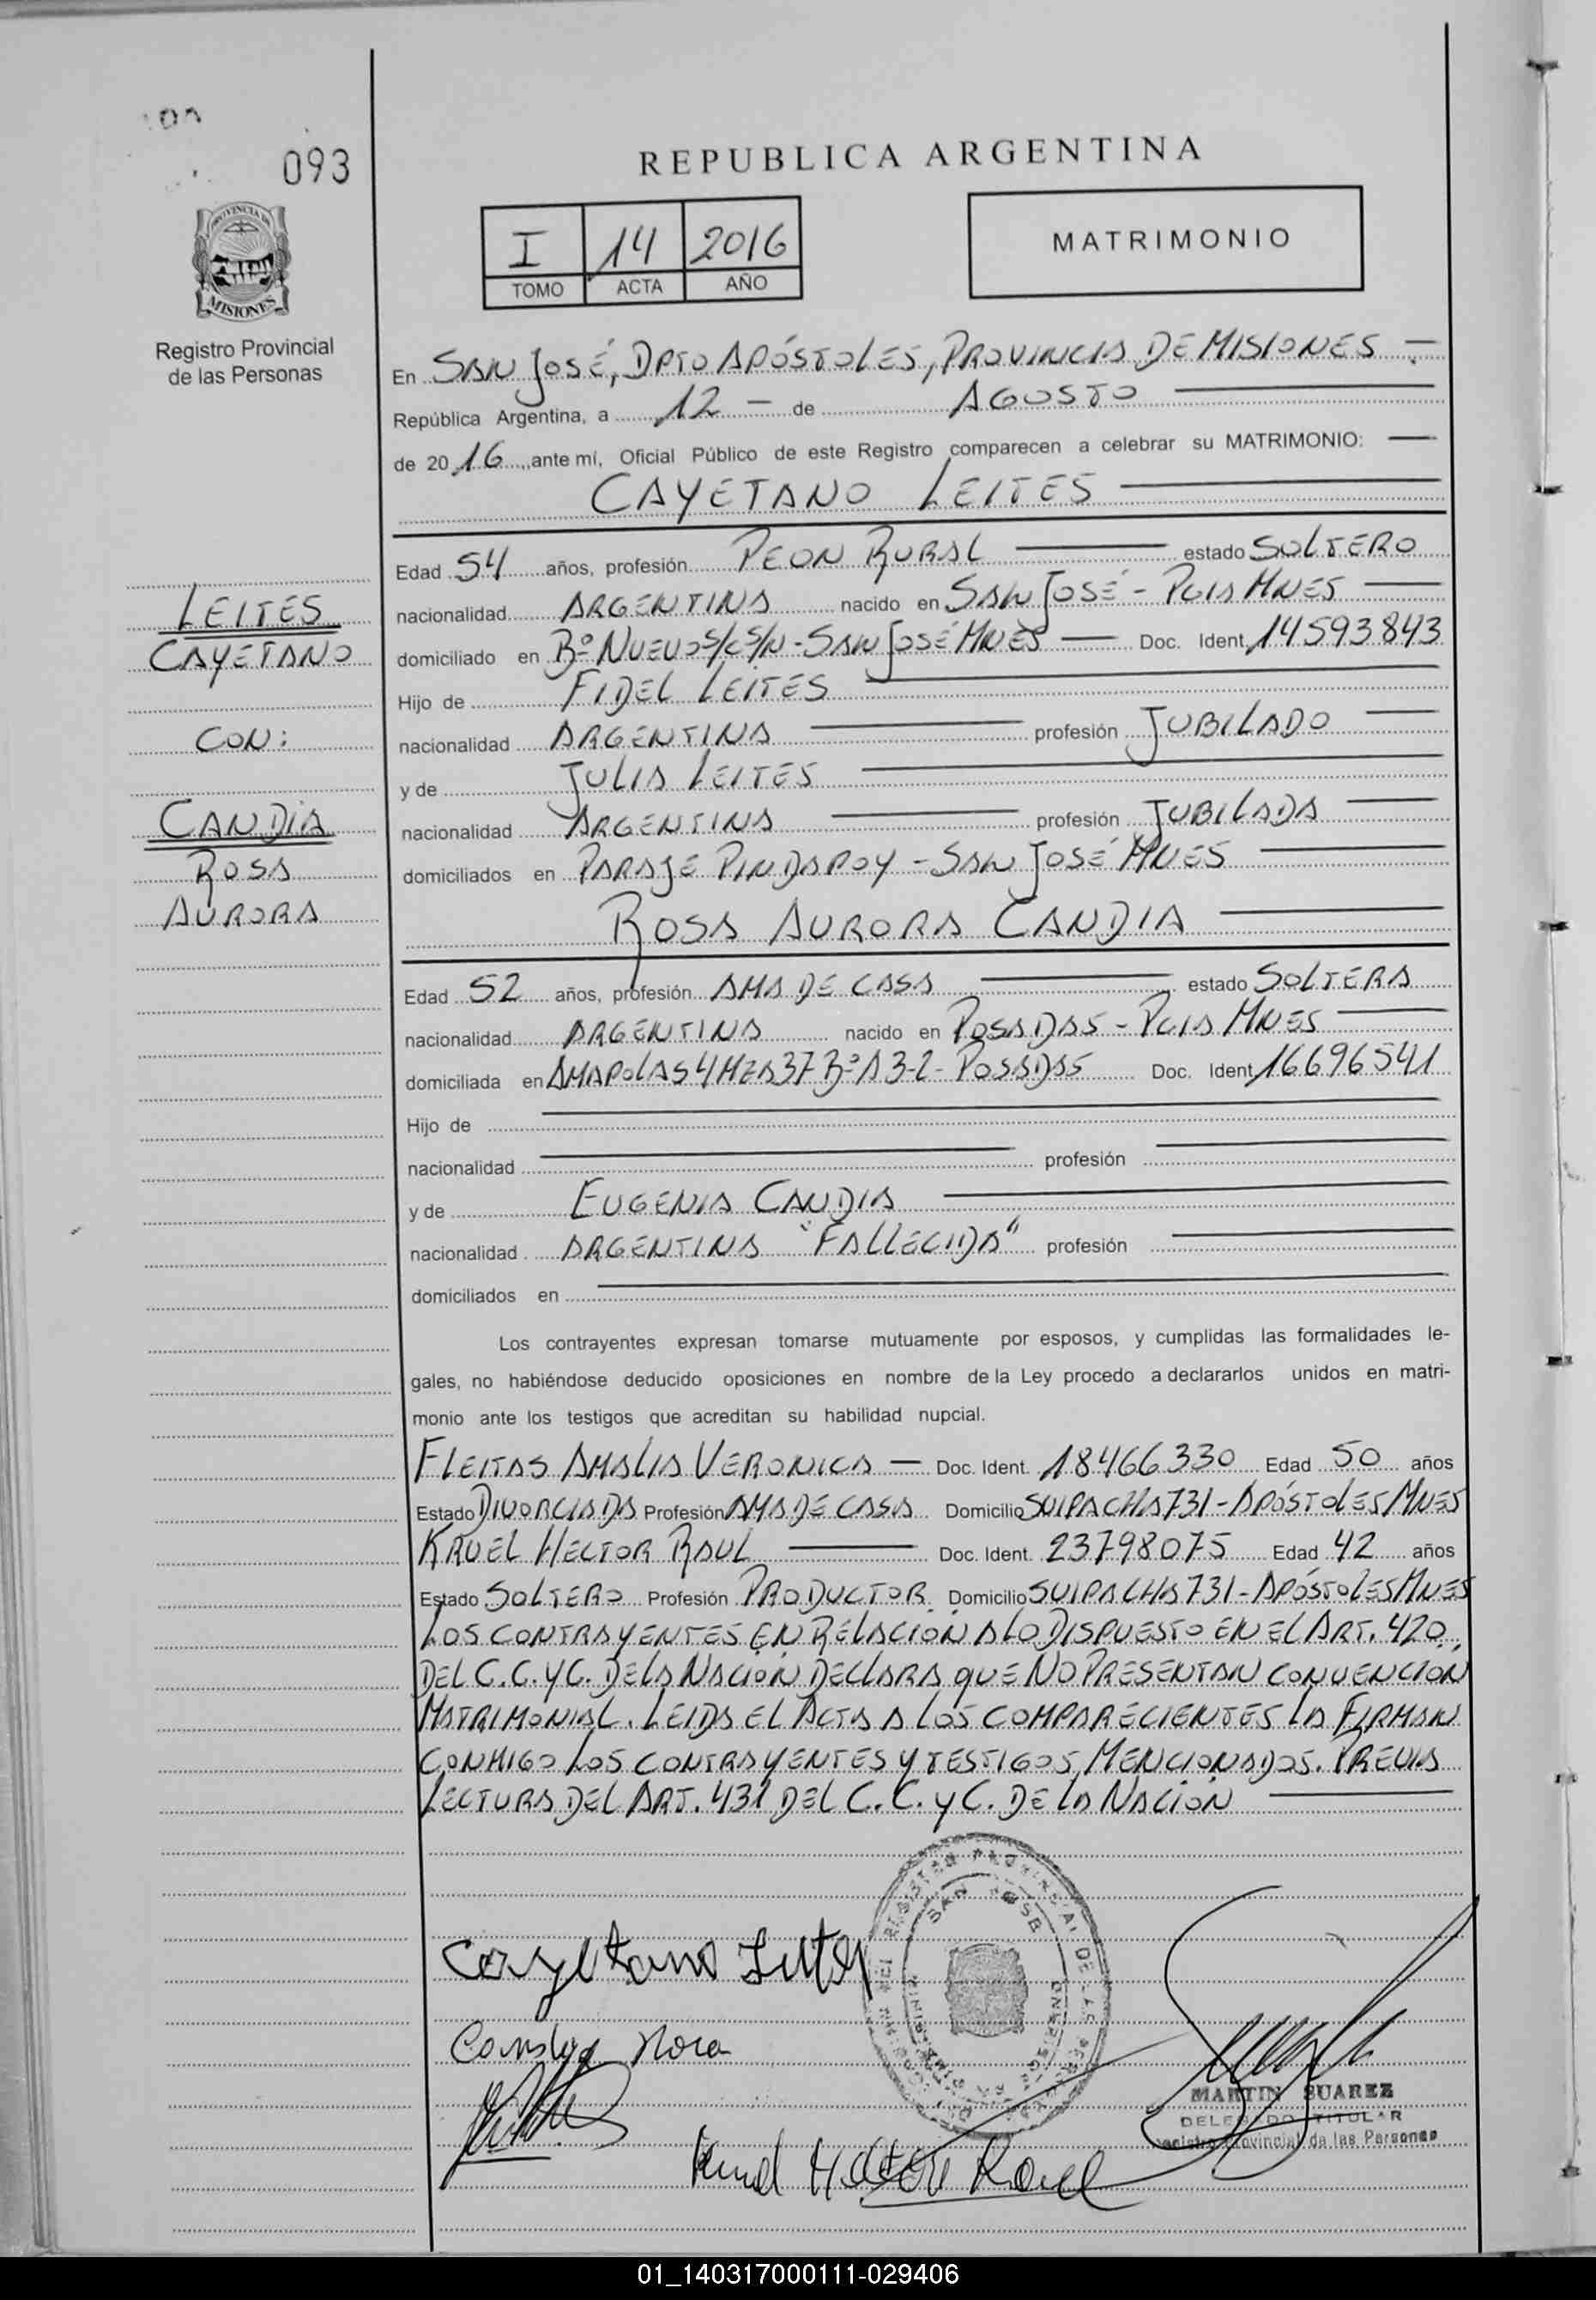 093
REPUBLICA ARGENTINA
PROVINCIA DE
MISIONES
Registro Provincial
de las Personas
I 14 2016
TOMO ACTA AÑO
MATRIMONIO
En SAN JOSÉ, DPTO APÓSTOLES, PROVINCIA DE MISIONES —
República Argentina, a 12 — de AGOSTO
de 20 16, ante mí, Oficial Público de este Registro comparecen a celebrar su MATRIMONIO: —
CAYETANO LEITES
Edad 54 años, profesión PEON RURAL estado SOLTERO
nacionalidad ARGENTINA nacido en SAN JOSÉ - PCIA MNES
domiciliado en Bº NUEVO S/C S/N - SAN JOSÉ MNES — Doc. Ident. 14593843
Hijo de FIDEL LEITES
nacionalidad ARGENTINA profesión JUBILADO
y de JULIA LEITES
nacionalidad ARGENTINA profesión JUBILADA
domiciliados en PARAJE PINDAPOY - SAN JOSÉ MNES
LEITES
CAYETANO
CON:
CANDIA
ROSA
AURORA
ROSA AURORA CANDIA
Edad 52 años, profesión AMA DE CASA estado SOLTERA
nacionalidad ARGENTINA nacido en POSADAS - PCIA MNES
domiciliada en AMAPOLAS 4 MZA 37 Bº A 3-2 - POSADAS Doc. Ident. 16696541
Hijo de
nacionalidad profesión
y de EUGENIA CANDIA
nacionalidad ARGENTINA "FALLECIDA" profesión
domiciliados en
Los contrayentes expresan tomarse mutuamente por esposos, y cumplidas las formalidades le-
gales, no habiéndose deducido oposiciones en nombre de la Ley procedo a declararlos unidos en matri-
monio ante los testigos que acreditan su habilidad nupcial.
FLEITAS AMALIA VERONICA — Doc. Ident. 18466330 Edad 50 años
Estado DIVORCIADA Profesión AMA DE CASA Domicilio SUIPACHA 731 - APÓSTOLES MNES
KRUEL HECTOR RAUL Doc. Ident. 23798075 Edad 42 años
Estado SOLTERO Profesión PRODUCTOR Domicilio SUIPACHA 731 - APÓSTOLES MNES
LOS CONTRAYENTES EN RELACIÓN A LO DISPUESTO EN EL ART. 420
DEL C.C. Y C. DE LA NACIÓN DECLARA QUE NO PRESENTAN CONVENCIÓN
MATRIMONIAL. LEIDA EL ACTA A LOS COMPARECIENTES LA FIRMAN
CONMIGO LOS CONTRAYENTES Y TESTIGOS MENCIONADOS. PREVIA
LECTURA DEL ART. 431 DEL C.C. y C. DE LA NACIÓN
REGISTRO PROVINCIAL DE LAS PERSONAS
SAN JOSE
Cayetano Leites
Candia Rosa
MARTIN SUAREZ
DELEGADO TITULAR
Registro Provincial de las Personas
Kruel Hector Raul
01_140317000111-029406